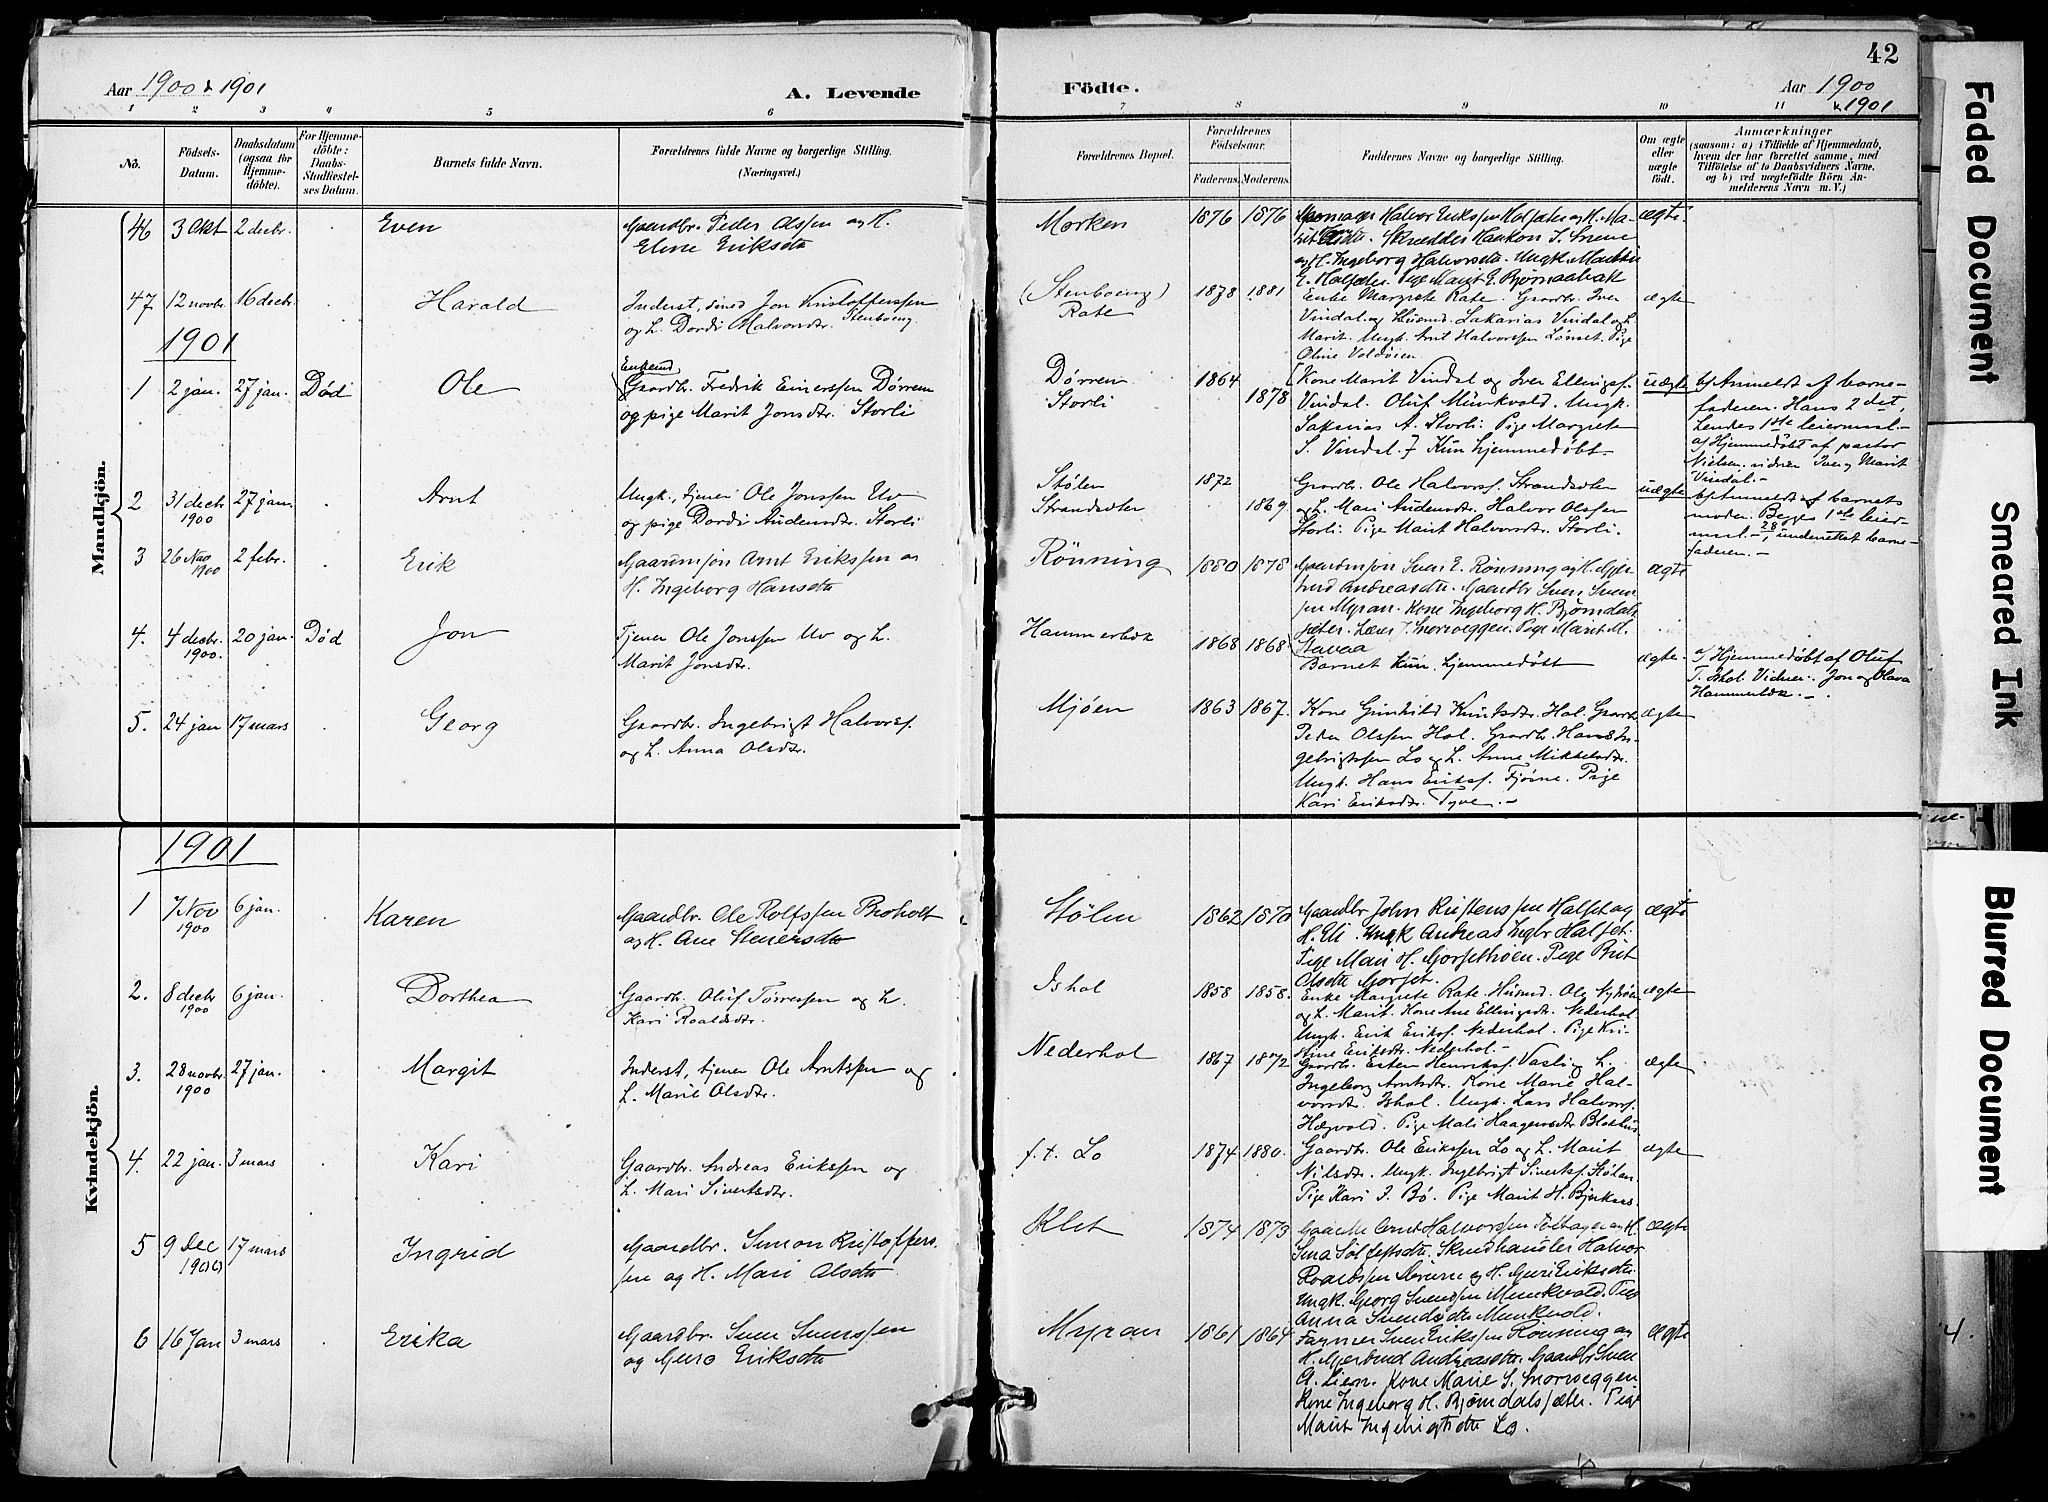 42
Aar 1900 & 1901
A. Levende
Födte.
Aar 1900
& 1901
1 2 3 4 5 6 7 8 9 10 11
No.
Födsels-
Datum.
Daabsdatum
(ogsaa for
Hjemme-
döbte).
For Hjemme-
döbte:
Daabs-
Stadfæstel-
ses Datum.
Barnets fulde Navn.
Forældrenes fulde Navne og borgerlige Stilling.
(Næringsvei.)
Forældrenes Bopæl.
Forældrenes
Födselsaar.
Faderens. Moderens.
Faddernes Navne og borgerlige Stilling.
Om ægte
eller
uægte
födt.
Anmærkninger
(saasom: a) i Tilfælde af Hjemmedaab,
hvem der har forrettet samme, med
Tilföielse af to Daabsvidners Navne,
og b) ved uægtefödte Börn An-
melderens Navn m. V.)
Mandkjön.
46 3 Okt 2 decbr. Even
Gaardbr. Peder Olssen og H.
Eline Eriksdtr
Morken 1876 1876
Halvor Erikssen Halsæter og H. Ma-
Skrædder Haakon J. Snene
og H. Ingeborg Halvorsdtr. Ungk.
E. Halsæter. Pige Marit E. Bjørnaabak
ægte
47 12 novbr. 16 decbr. Harald
Inderst, Jon Kristofferssen
og h. Dordi Halvorsdtr. Stenboeng
(Stenboeng)
Rate
1878 1881
Enke Margrete Rate. Gaardbr. Iver
Vindal og Husmd. Sakarias Vindal og h.
Marit. Ungk. Arnt Halvorssen Lønset. Pige
Oline Voldøien
ægte
1901
1 2 jan. 27 jan. Død Ole
Enkemd
Gaardbr. Fredrik Einerssen Dørrem
og pige Marit Jonsdtr. Storli
Dørrem
Storli
1864
1878
Kone Marit Vindal og Iver Ellingsf.
Vindal. Oluf Munkvold. Ungk.
Sakarias A. Storli. Pige Margrete
S. Vindal. Kun hjemmedøbt.
uægte
b) Anmeldt af barne-
faderen. Hans 2 det,
hendes 1ste leiermaal.
a) Hjemmedøbt af pastor
Nielsen. vidner Iver og Marit
Vindal.
2 31 decbr 1900 27 jan. Arnt
Ungk., tjener Ole Jonssen Uv
og pige Dordi Audensdtr. Storli
Stølen
1872
1869
Gaardbr. Ole Halvorsf.
og h. Mari Audensdtr. Halvor Olssen
Storli. Pige Marit Halvorsdtr. Storli.
uægte
b) Anmeldt af barnets
moder. Begges 1ste leier-
maal. underrettet barne-
faderen.
3 26 Nov 1900 2 febr. Erik
Gaardmsøn Arnt Erikssen og
H. Ingeborg Hansdtr
Rönning 1880 1878
Gaardmsøn Sven E. Rönning og H. Gjer-
trud Andreasdtr. Gaardbr Sven Sven-
sen Myran. Kone Ingeborg H. Bjørndals-
sæter. Lærer J. Snorveggen. Pige Marit M.
Havaa
ægte
4. 4 decbr. 1900. 20 jan. Død Jon
Tjener Ole Jonssen Uv og h.
Marit Jonsdtr.
Hammerbæk 1868 1868
Barnet kun hjemmedøbt
ægte
a) Hjemmedøbt af Oluf
T. Ishol. Vidner: Jon og Olava
Hammerbæk.
5. 24 jan 17 mars Georg
Gaardbr. Ingebrigt Halvorsf.
og h. Anna Olsdtr.
Mjøen 1863 1867
Kone Gunhild Knutsdtr. Hol. Gaardbr.
Peder Olssen Hol. Gaardbr. Hans In-
gebrigtssen Lo og h. Anne Mikkelsdtr.
Ungk. Hans Eriksf. Fjørne. Pige
Kari Eriksdtr. Tyve.
ægte
Kvindekjön.
1901
1 7 Nov 1900 6 jan. Karen
Gaardbr. Ole Rolfssen Broholt
og H. Ane Stenersdtr
Stølen 1862 1870
Gaardbr John Kristenssen Halset og
H. Eli. Ungk Andreas Ingbr Halset.
Pige Mari H. Gorsethøen. Pige Brit
Olsdtr Gorset.
ægte
2. 8 decbr 1900 6 jan. Dorthea
Gaardb. Oluf Tørressen og h.
Kari Roaldsdtr.
Ishol 1858 1858
Enke Margrete Rate. Husmd. Ole Nyhøen
og h. Marit. Kone Ane Ellingsdtr. Nederhol
Ungk. Erik Eriksf. Nederhol. Pige Kri-
stine Eriksdtr. Nederhol.
ægte
3. 28 novbr. 1900 27 jan. Margit
Inderst, tjener Ole Arntssen og
h. Marit Olsdtr.
Nederhol 1867 1872
Gaardbr. Esten Henriksf. Vasli og h.
Ingeborg Arntsdtr. Kone Marie Hal-
vorsdtr. Ishol. Ungk. Lars Halvorsf.
Hægvold. Pige Mali Haagensdtr
ægte
4. 22 jan. 3 mars Kari
Gaardbr. Andreas Erikssen og
h. Mari Sivertsdtr.
f. t. Lo 1874 1880
Gaardbr. Ole Erikssen Lo og h. Marit
Nilsdtr. Ungk. Ingebrigt Sivertsf. Stølen
Pige Kari I. Bö. Pige Marit H. Bjerkaas
ægte
5 9 Dec 1900 17 mars Ingrid
Gaardbr. Simon Kristoffers-
sen og H. Mari Olsdtr
Klet 1874 1873
Gaardbr Arnt Halvorssen og H.
Skrædhandler Halvor
Roaldssen og H. Guri Eriksdtr.
Ungk. Georg Svendsen Munkvold. Pige
Anna Svendsdtr Munkvold.
ægte
6 16 Jan 3 mars Erika
Gaardbr. Sven Svenssen
og Guro Eriksdtr
Myran 1861 1864
Farmer Sven Erikssen Rönning og
H. Gjertrud Andreasdtr. Gaardbr Sven
A. Lien. Kone Marie S. Snorveggen
Kone Ingeborg H. Bjørndalssæter. Pige
Marit Ingebrigtsdtr Lo.
ægte
Faded Document
Smeared Ink
Blurred Document
4.